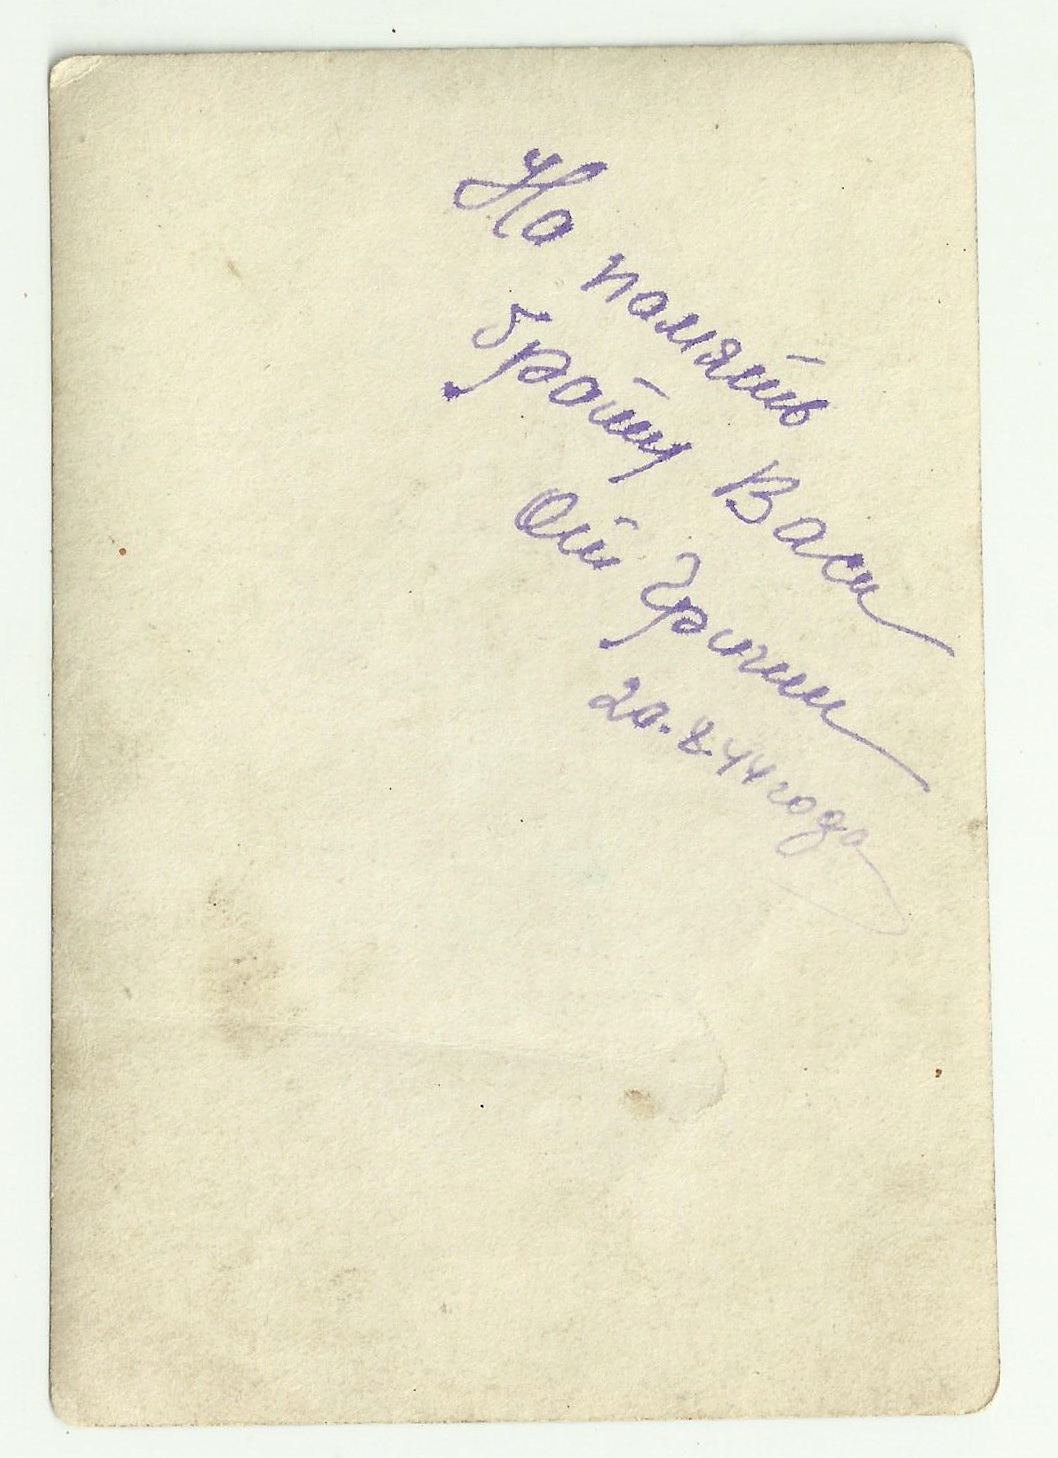 На память
брату Васи
От Гриши
20.8.44 года